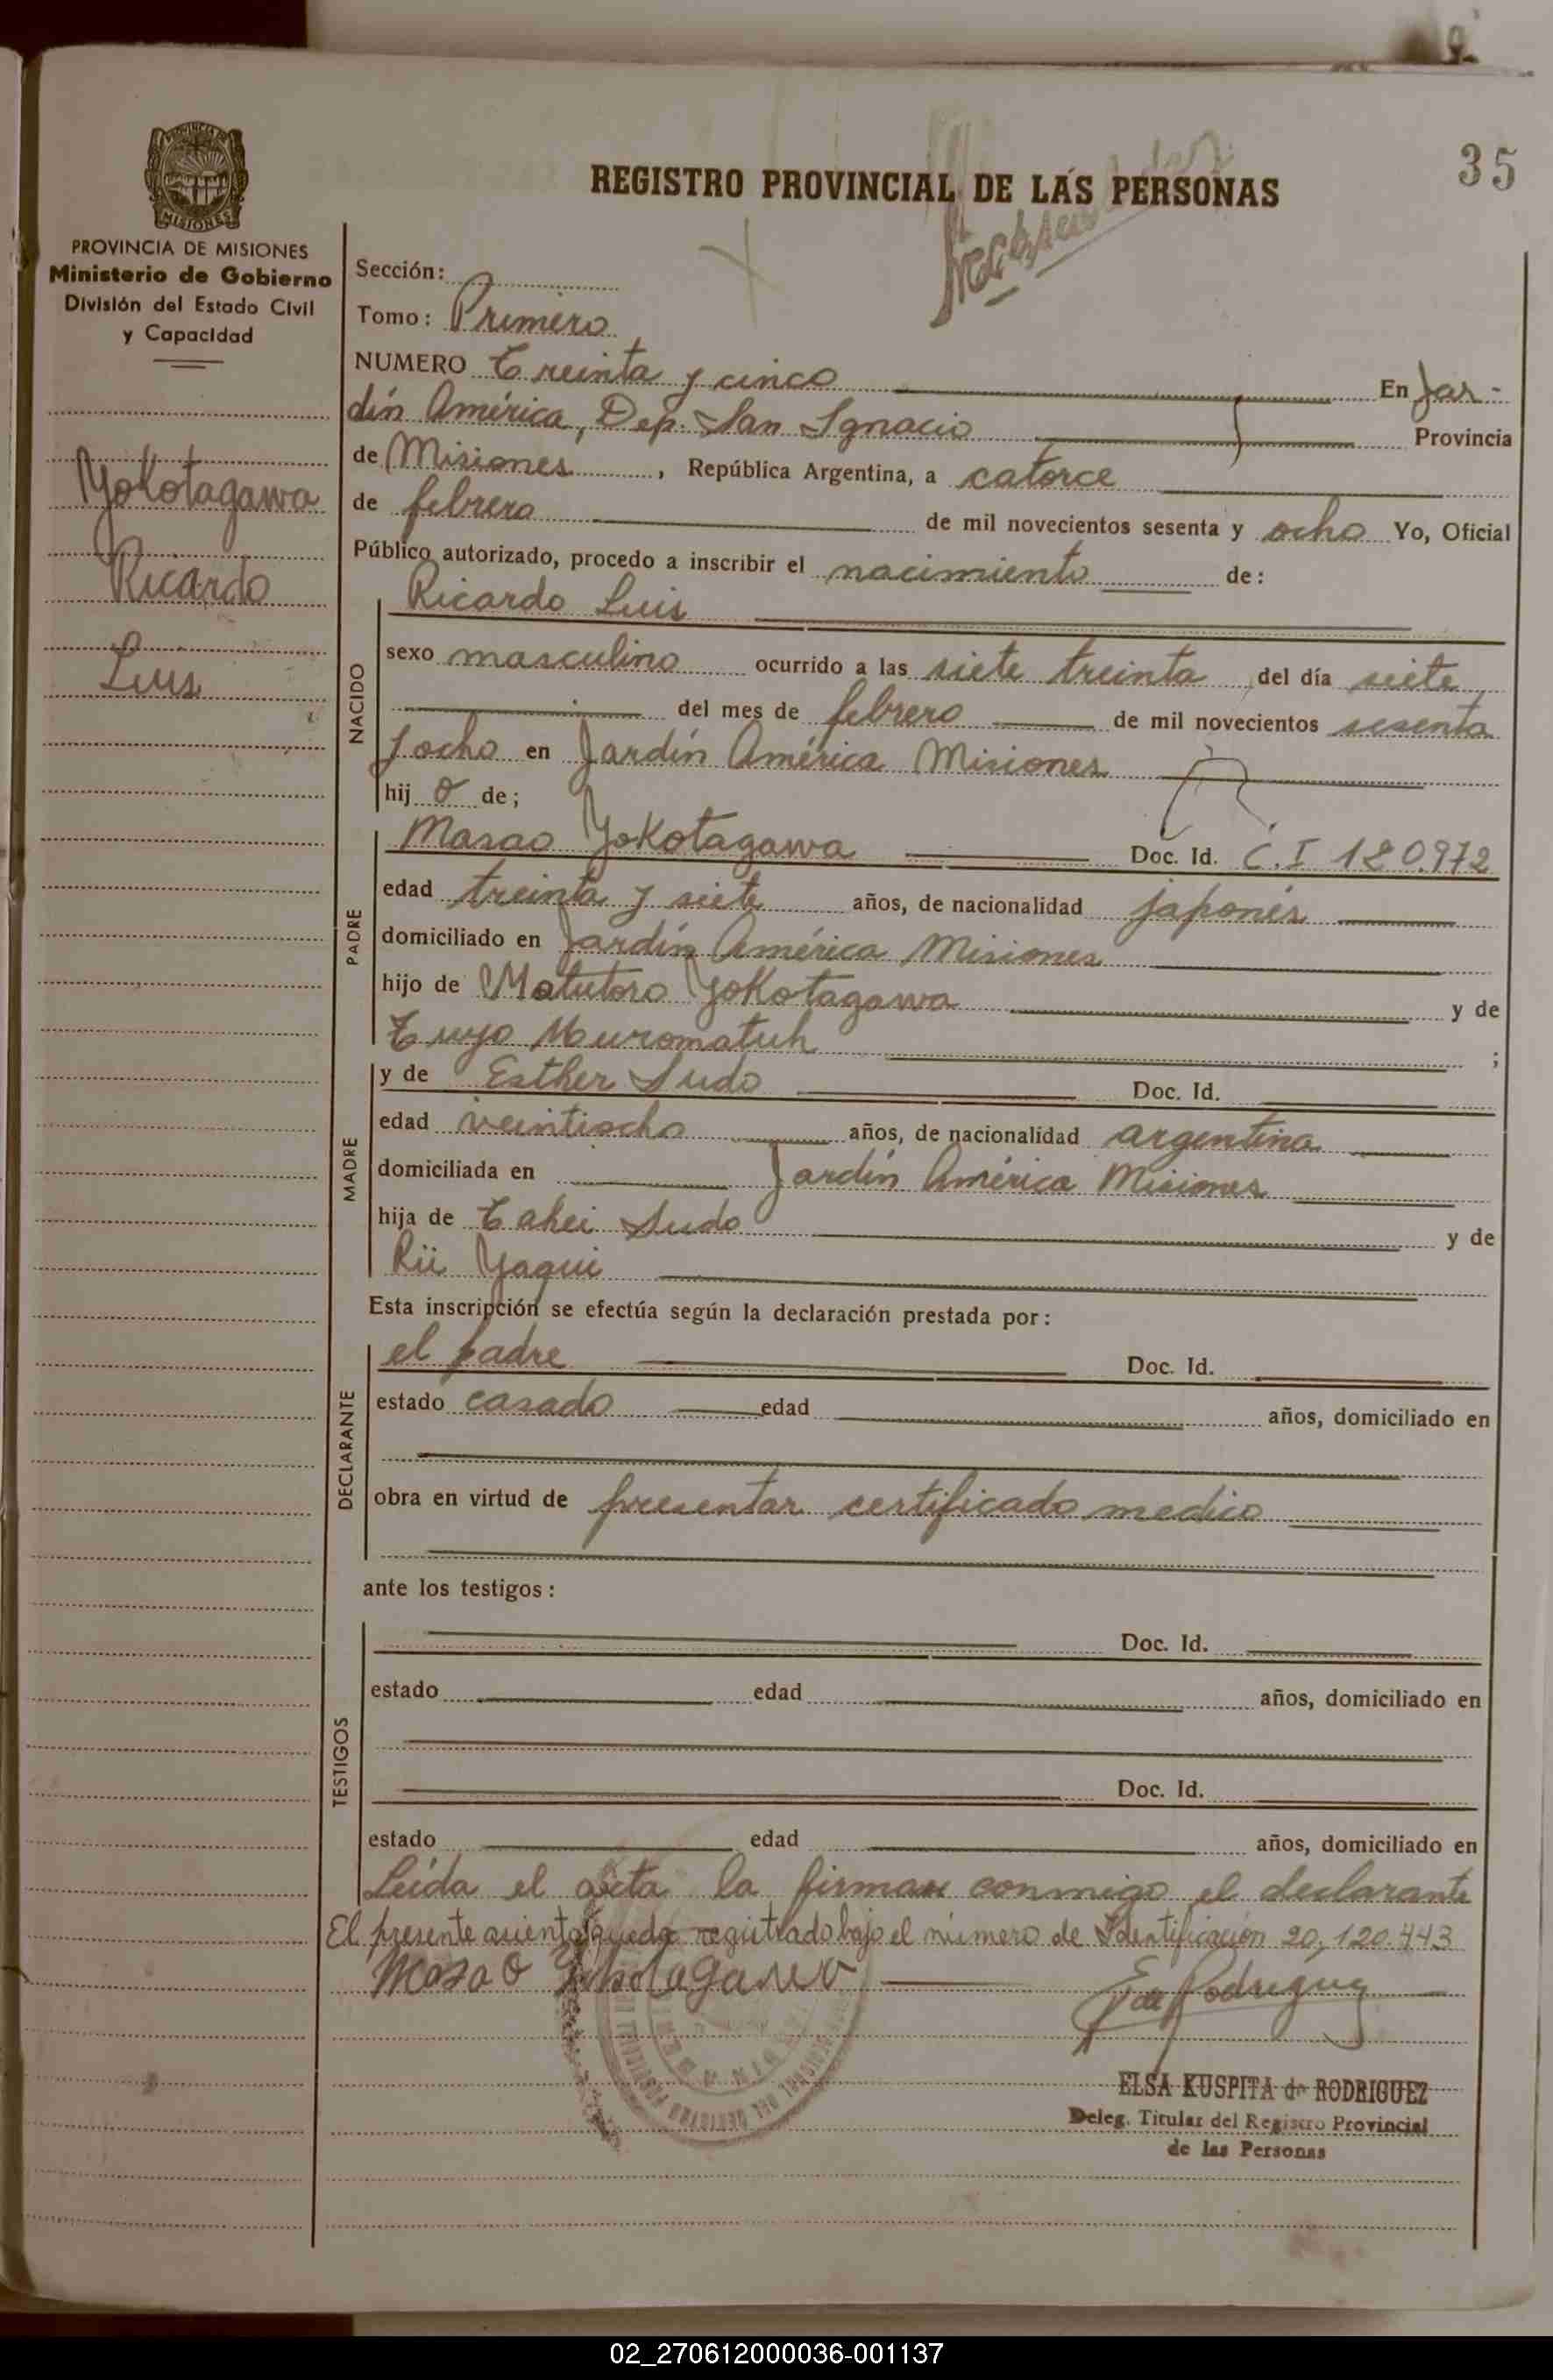 35
REGISTRO PROVINCIAL DE LAS PERSONAS
PROVINCIA DE
MISIONES
PROVINCIA DE MISIONES
Ministerio de Gobierno
División del Estado Civil
y Capacidad
Yokotagawa
Ricardo
Luis
Sección:
Tomo: Primero
NUMERO Treinta y cinco En Jar-
dín América, Dep. San Ignacio Provincia
de Misiones, República Argentina, a catorce
de febrero de mil novecientos sesenta y ocho Yo, Oficial
Público autorizado, procedo a inscribir el nacimiento de:
NACIDO
Ricardo Luis
sexo masculino ocurrido a las siete treinta del día siete
del mes de febrero de mil novecientos sesenta
y ocho en Jardín América Misiones
hij o de;
PADRE
Masao Yokotagawa Doc. Id. C.I 180.972
edad treinta y siete años, de nacionalidad japonés
domiciliado en Jardín América Misiones
hijo de Matutoro Yokotagawa y de
Tuyo Muromatuh ;
MADRE
y de Esther Sudo Doc. Id.
edad veintiocho años, de nacionalidad argentina
domiciliada en Jardín América Misiones
hija de Takei Sudo y de
Rii Yagui
Esta inscripción se efectúa según la declaración prestada por:
DECLARANTE
el padre Doc. Id.
estado casado edad años, domiciliado en
obra en virtud de presentar certificado medico
ante los testigos:
TESTIGOS
Doc. Id.
estado edad años, domiciliado en
Doc. Id.
estado edad años, domiciliado en
Leída el acta la firman conmigo el declarante
El presente asiento queda registrado bajo el número de Identificación 20,120.443
Masao Yokotagawa E de Rodriguez
ELSA KUSPITA de RODRIGUEZ
Deleg. Titular del Registro Provincial
de las Personas
02_270612000036-001137